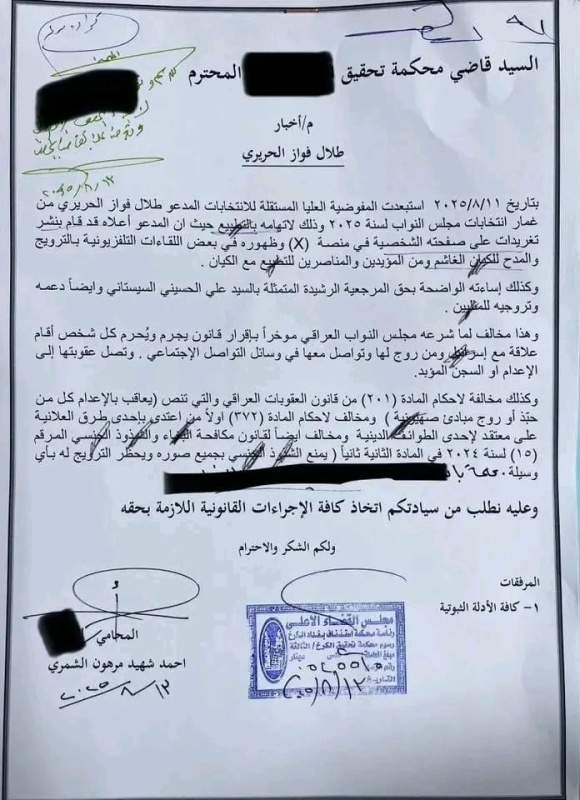 السيد قاضي محكمة تحقيق المحترم
م/أخبار
طلال فواز الحريري
٢٠٢٥/٨/١٢
بتاريخ ٢٠٢٥/٨/١١ استبعدت المفوضية العليا المستقلة للانتخابات المدعو طلال فواز الحريري من
غمار انتخابات مجلس النواب لسنة ٢٠٢٥ وذلك لاتهامه بالتطبيع حيث ان المدعو أعلاه قد قام بنشر
تغريدات على صفحته الشخصية في منصة (X) وظهوره في بعض اللقاءات التلفزيونية بالترويج
والمدح للكيان الغاشم ومن المؤيدين والمناصرين للتطبيع مع الكيان .
وكذلك إساءته الواضحة بحق المرجعية الرشيدة المتمثلة بالسيد علي الحسيني السيستاني وايضاً دعمه
وترويجه للمثليين .
وهذا مخالف لما شرعه مجلس النواب العراقي موخراً بإقرار قانون يجرم ويُحرم كل شخص أقام
علاقة مع إسرائيل ومن روج لها وتواصل معها في وسائل التواصل الإجتماعي . وتصل عقوبتها إلى
الإعدام أو السجن المؤبد.
وكذلك مخالفة لاحكام المادة (٢٠١) من قانون العقوبات العراقي والتي تنص (يعاقب بالإعدام كل من
حبّذ أو روج مبادئ صهيونية ) ومخالف لاحكام المادة (٣٧٢) اولاً من اعتدى بإحدى طرق العلانية
على معتقد لإحدى الطوائف الدينية ومخالف ايضاً لقانون مكافحة البغاء والشذوذ الجنسي المرقم
(١٥) لسنة ٢٠٢٤ في المادة الثانية ثانياً ( يمنع الشذوذ الجنسي بجميع صوره ويحظر الترويج له بأي
وسيلة
وعليه نطلب من سيادتكم اتخاذ كافة الإجراءات القانونية اللازمة بحقه
ولكم الشكر والاحترام
المرفقات
١- كافة الأدلة الثبوتية
مجلس القضاء الأعلى
رئاسة محكمة استئناف بغداد الكرخ
رسوم محكمة تحقيق الكرخ / الثالثة
دينار
المحامي
احمد شهيد مرهون الشمري
٢٠٢٥/٨/١٢